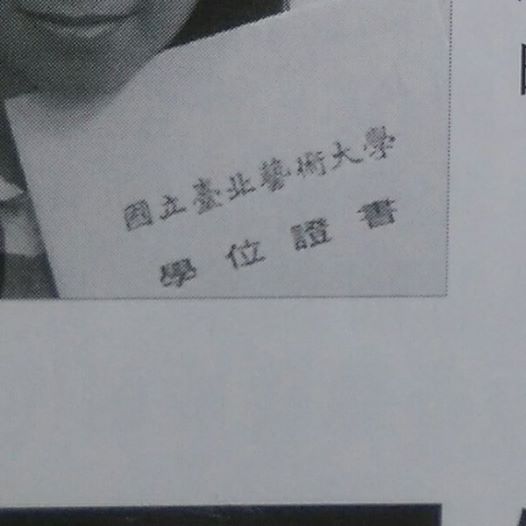 國立臺北藝術大學
學位證書